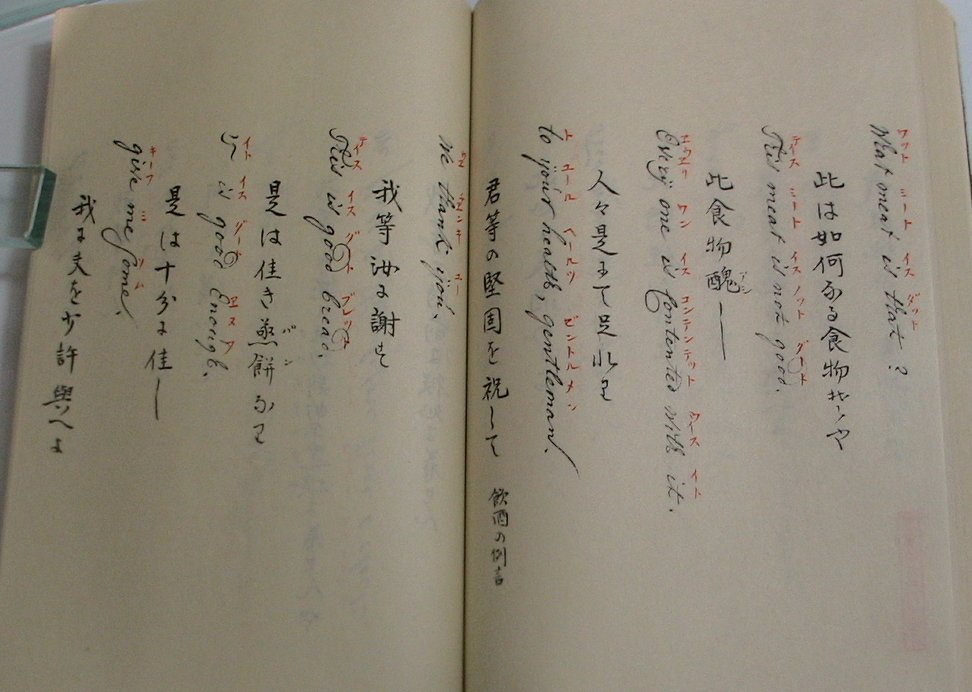 ワット ミート イス ダット
What meat is that?
此は如何なる食物なりや
デイス ミート イス ノット グート
This meat is not good.
此食物醜シー
エウエリ ワン イス コンテンテット ウイス イト
Every one is contented with it.
人々是まて足れり
ト ユール ヘールツ ゼントルメン
to your health, gentleman.
君等の堅固を祝して 飲酒の例言
ウエ テンキ ユー
We thank you.
我等汝に謝す
デイス イス グート ブレット
This is good bread.
是は佳き蒸餅なり
バン
イト イス グート エヌフ
it is good enough.
是は十分に佳し
キーフ ミ ソム
give me some.
我に夫を少許與へよ